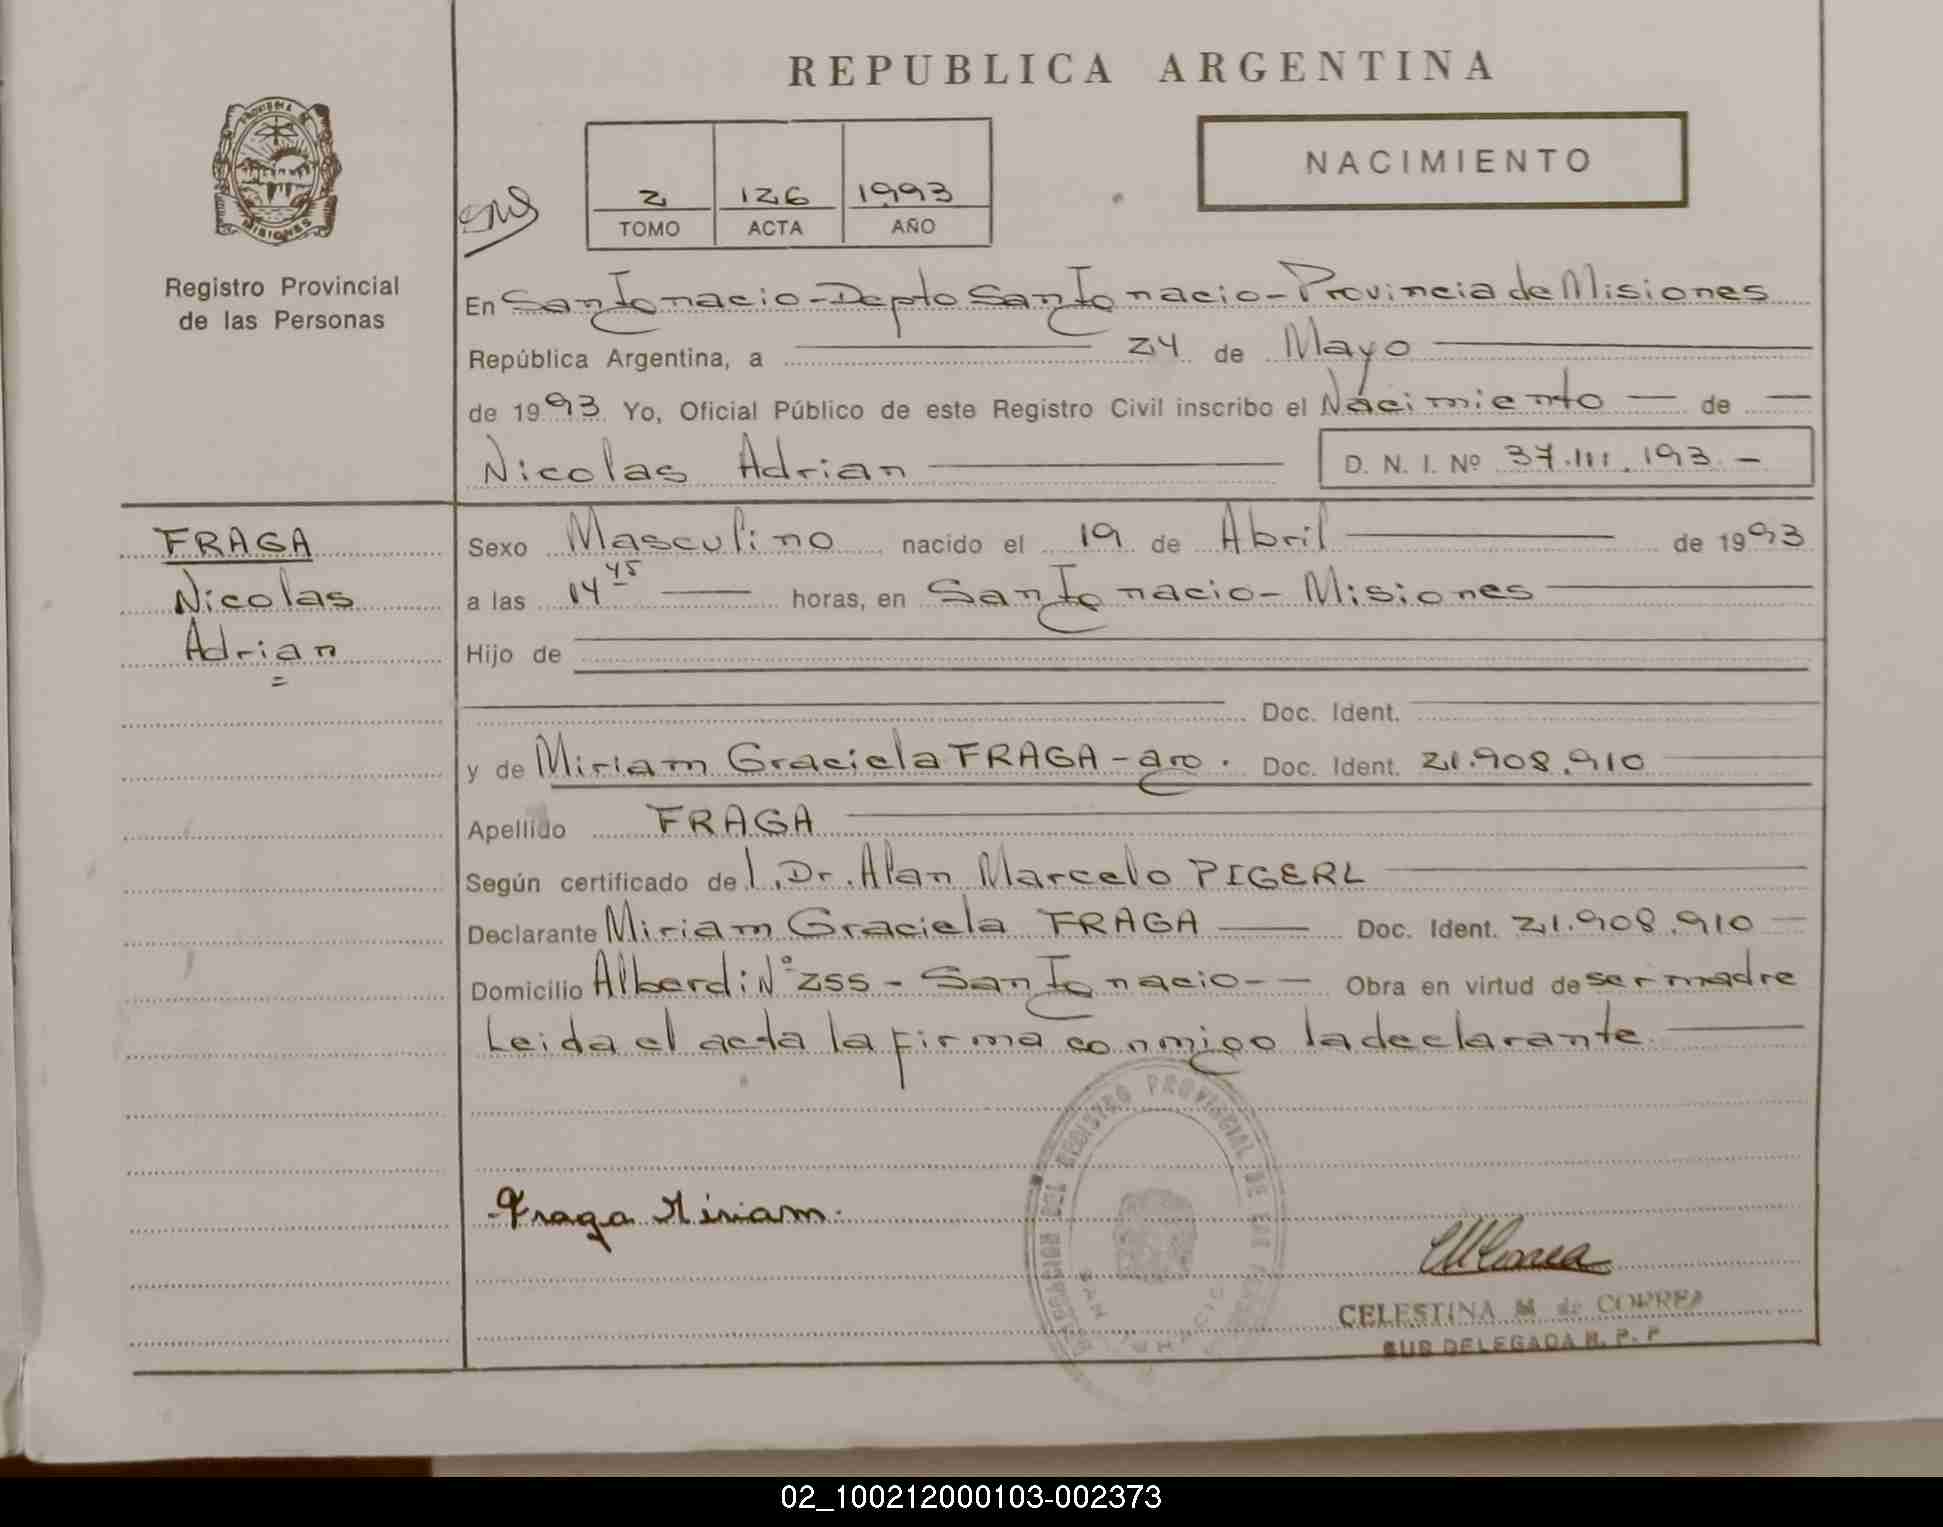 REPUBLICA ARGENTINA
PROVINCIA DE
MISIONES
Registro Provincial
de las Personas
2 126 1993
TOMO ACTA AÑO
NACIMIENTO
En San Ignacio - Depto San Ignacio - Provincia de Misiones
República Argentina, a 24 de Mayo
de 1993 Yo, Oficial Público de este Registro Civil inscribo el Nacimiento de
Nicolas Adrian D. N. I. Nº 37.111.193.-
FRAGA
Nicolas
Adrian
Sexo Masculino nacido el 19 de Abril de 1993
a las 14 45 horas, en San Ignacio - Misiones
Hijo de
Doc. Ident.
y de Miriam Graciela FRAGA - arg. Doc. Ident. 21.908.910
Apellido FRAGA
Según certificado del Dr. Alan Marcelo PIGERL
Declarante Miriam Graciela FRAGA Doc. Ident. 21.908.910
Domicilio Alberdi Nº 255 - San Ignacio - Obra en virtud de ser madre
Leida el acta la firma conmigo la declarante
DELEGACION DEL REGISTRO PROVINCIAL DE LAS PERSONAS
SAN IGNACIO
Fraga Miriam.
CELESTINA M. de CORREA
SUB DELEGADA R. P. P
02_100212000103-002373